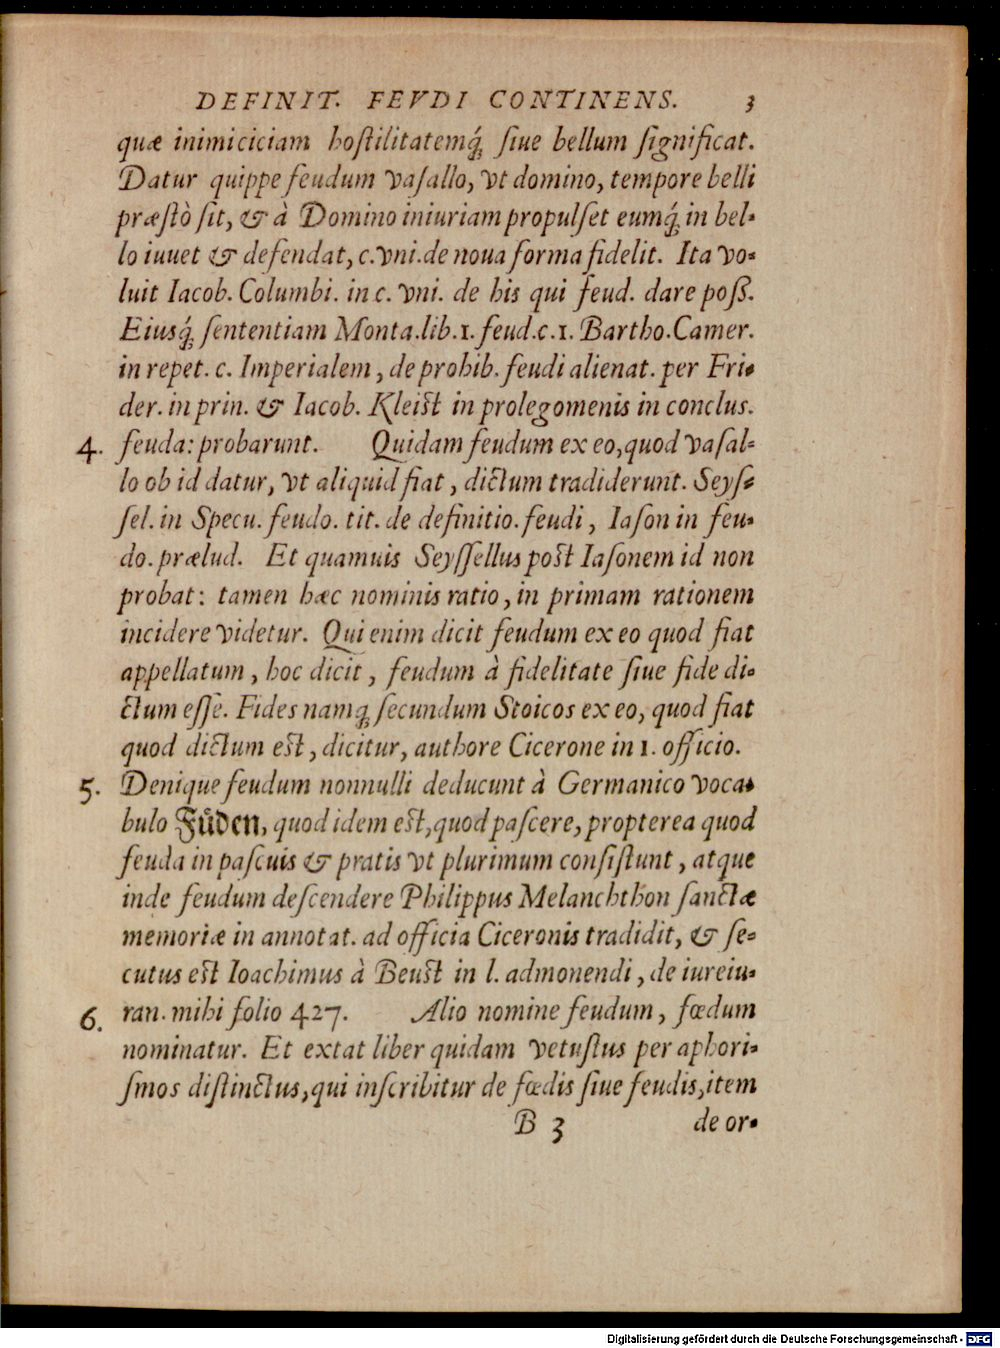 DEFINIT. FEVDI CONTINENS. 3
quæ inimiciciam hoſtilitatemq́; ſiue bellum ſignificat.
Datur quippe feudum vaſallo, vt domino, tempore belli
præſtò ſit, & à Domino iniuriam propulſet eumq́; in bel-
lo iuuet & defendat, c. vni. de noua forma fidelit. Ita vo-
luit Iacob. Columbi. in c. vni. de his qui feud. dare poß.
Eiusq́; ſententiam Monta. lib. 1. feud. c. 1. Bartho. Camer.
in repet. c. Imperialem, de prohib. feudi alienat. per Fri-
der. in prin. & Iacob. Kleist in prolegomenis in conclus.
4. feuda: probarunt. Quidam feudum ex eo, quod vaſal-
lo ob id datur, vt aliquid fiat, dictum tradiderunt. Seyſ-
ſel. in Specu. feudo. tit. de definitio. feudi, Iaſon in feu-
do. prælud. Et quamuis Seyſſellus post Iaſonem id non
probat: tamen hæc nominis ratio, in primam rationem
incidere videtur. Qui enim dicit feudum ex eo quod fiat
appellatum, hoc dicit, feudum à fidelitate ſiue fide di-
ctum eſſe. Fides namq; ſecundum Stoicos ex eo, quod fiat
quod dictum est, dicitur, authore Cicerone in 1. officio.
5. Denique feudum nonnulli deducunt à Germanico voca-
bulo Fuͤden, quod idem est, quod paſcere, propterea quod
feuda in paſcuis & pratis vt plurimum conſiſtunt, atque
inde feudum deſcendere Philippus Melanchthon ſanctæ
memoriæ in annotat. ad officia Ciceronis tradidit, & ſe-
cutus est Ioachimus à Beust in l. admonendi, de iureiu-
6. ran. mihi folio 427. Alio nomine feudum, fœdum
nominatur. Et extat liber quidam vetuſtus per aphori-
ſmos diſtinctus, qui inſcribitur de fœdis ſiue feudis, item
B 3 de or-
Digitalisierung gefördert durch die Deutsche Forschungsgemeinschaft - DFG